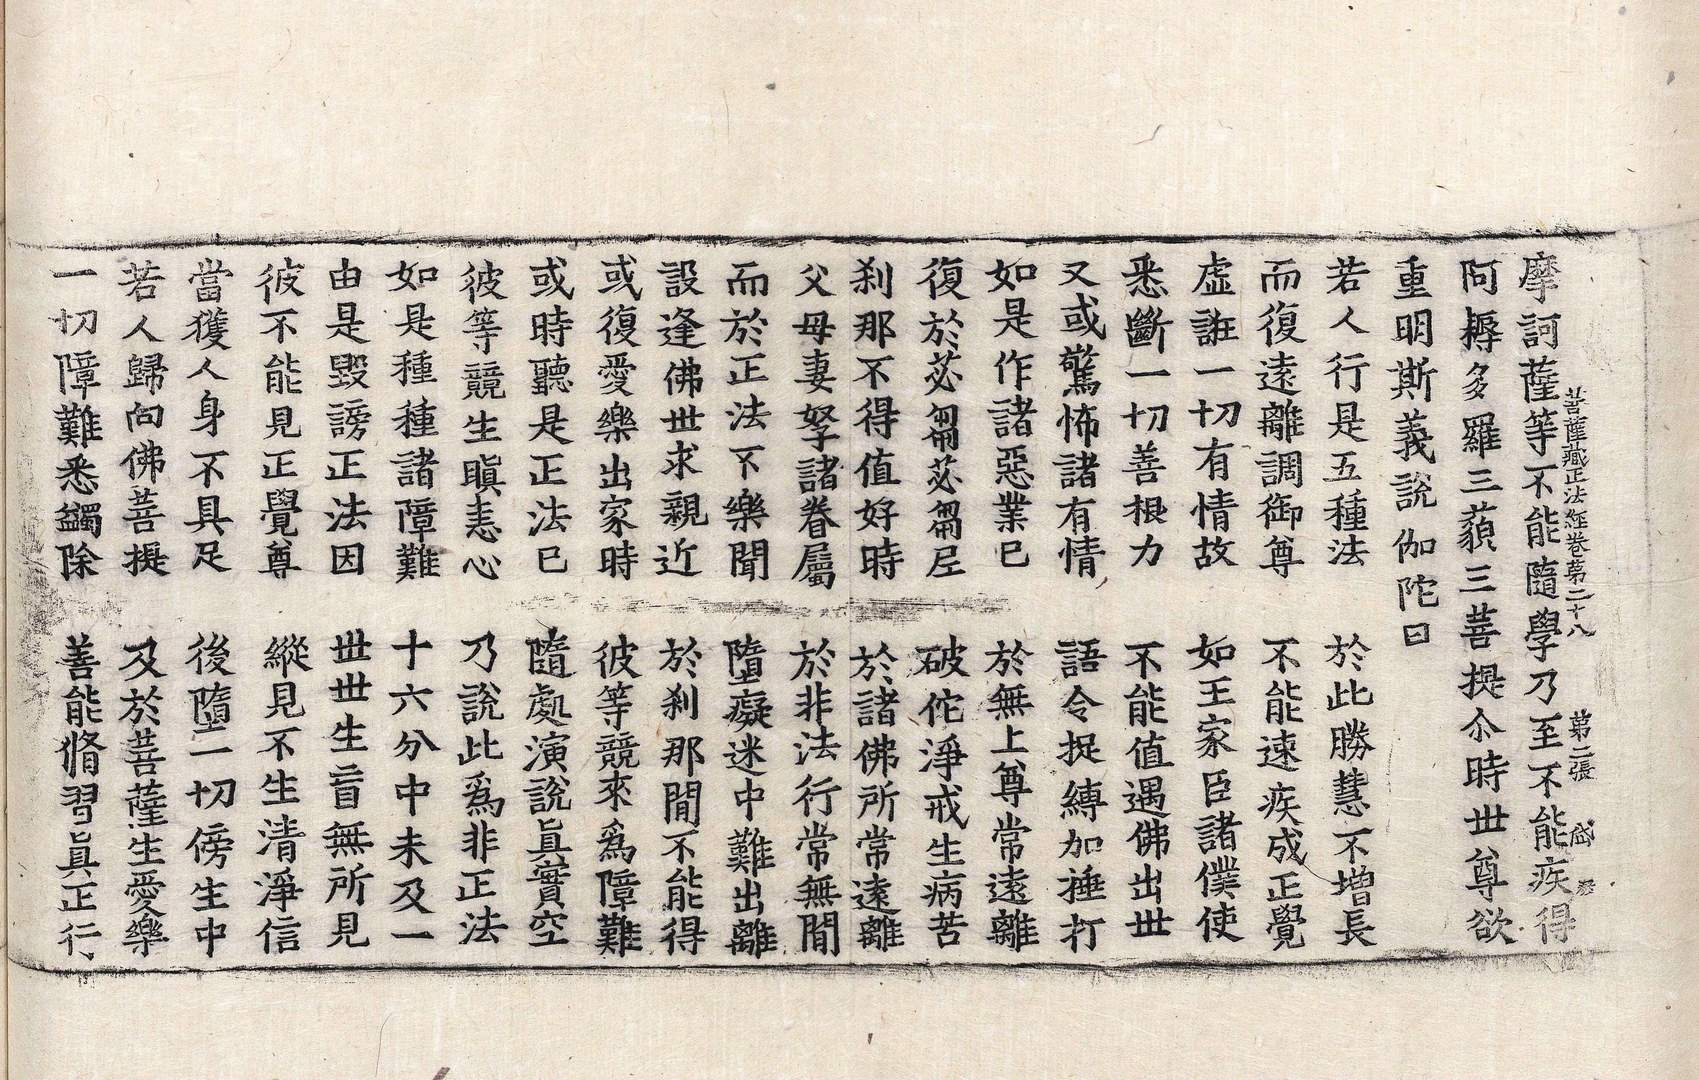 摩訶薩等不能隨學乃至不能疾得
菩薩藏正法經卷第二十八 第二張
阿耨多羅三藐三菩提尒時世尊欲
重明斯義說伽陀曰
若人行是五種法 於此勝慧不增長
而復遠離調御尊 不能速疾成正覺
虛誑一切有情故 如王家臣諸僕使
悉斷一切善根力 不能值遇佛出世
又或驚怖諸有情 語令捉縛加捶打
如是作諸惡業已 於無上尊常遠離
復於苾芻苾芻尼 破佗淨戒生病苦
刹那不得值好時 於諸佛所常遠離
父母妻孥諸眷屬 於非法行常無閒
而於正法不樂聞 墮癡迷中難出離
設逢佛世求親近 於刹那閒不能得
或復愛樂出家時 彼等競來爲障難
或時聽是正法已 隨處演說眞實空
彼等競生瞋恚心 乃說此爲非正法
如是種種諸障難 十六分中未及一
由是毀謗正法因 世世生盲無所見
彼不能見正覺尊 縱見不生清淨信
當獲人身不具足 後墮一切傍生中
若人歸向佛菩提 及於菩薩生愛樂
一切障難悉蠲除 善能脩習眞正行